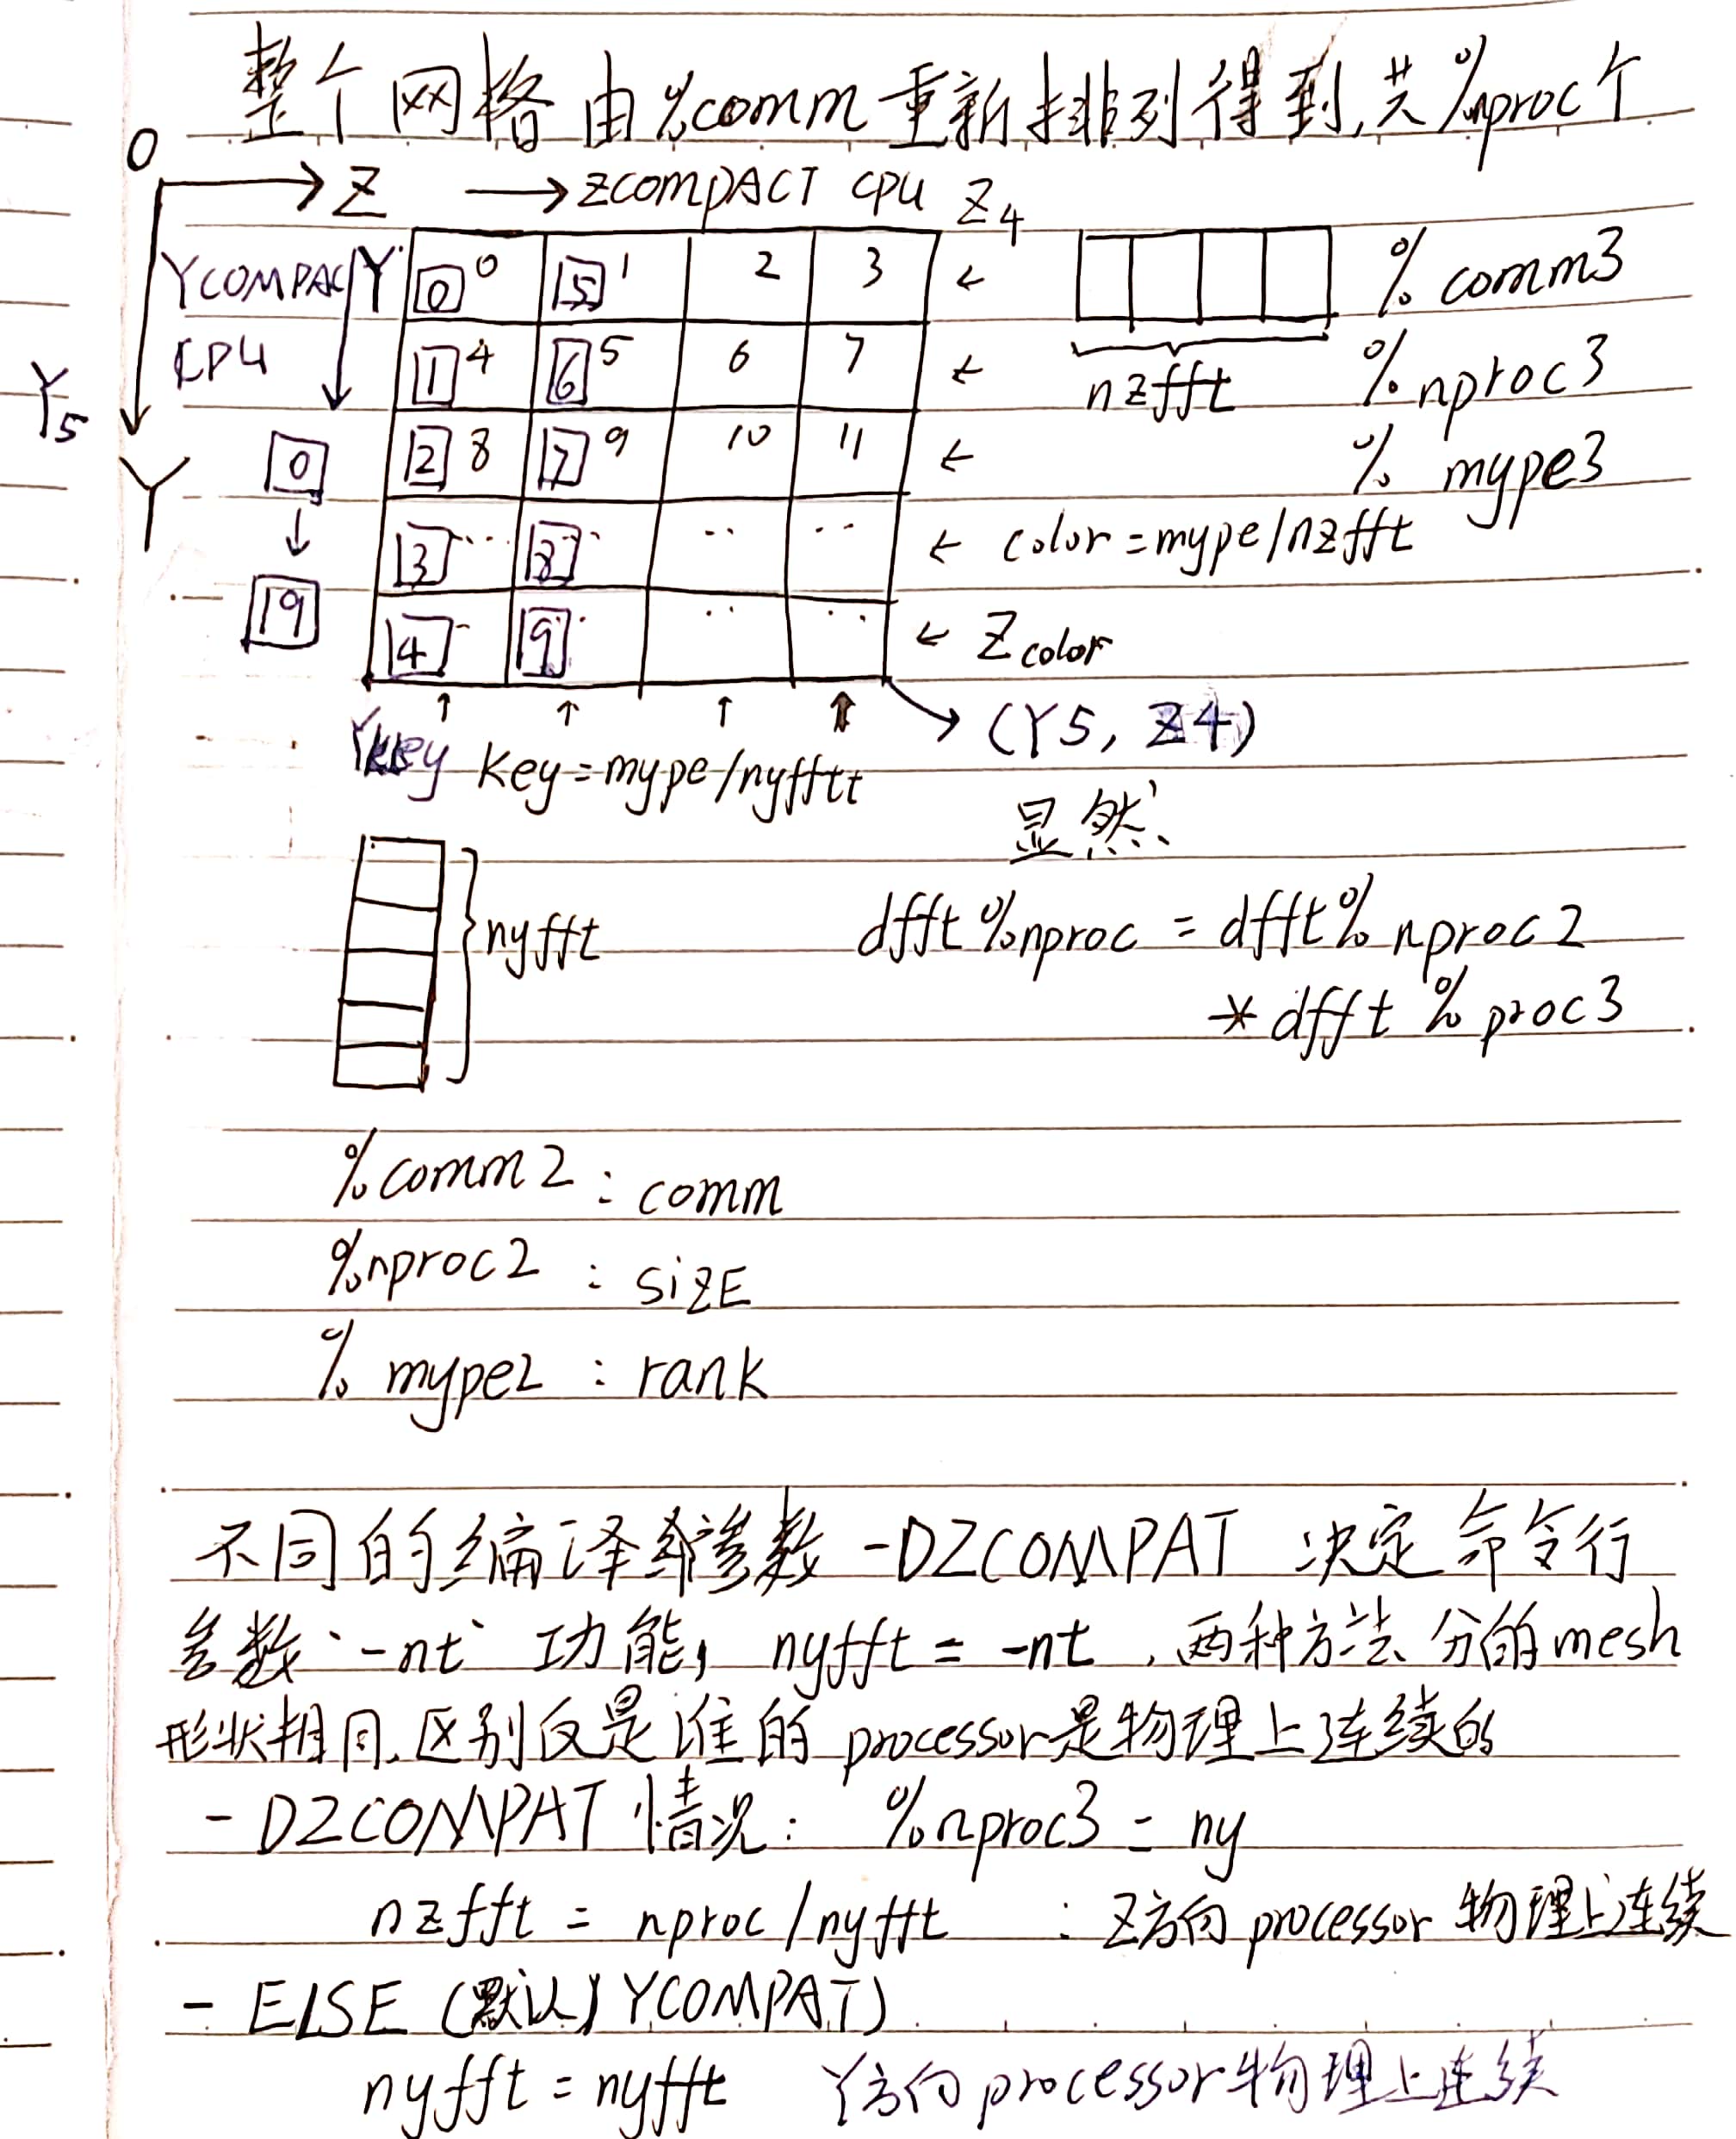 整个网格由%comm重新排列得到,共%nproc个
O
→Z →ZCOMPACT CPU Z4
YCOMPAC Y
CPU
Y5
Y
0 0 5 1 2 3 ←
1 4 6 5 6 7 ←
2 8 7 9 10 11 ←
3 ... 8 .. .. .. ← color=mype/nzfft
4 .. 9 .. .. .. ← Zcolor
0
↓
19
% comm3
nzfft % nproc3
% mype3
↑ ↑ ↑ ↑ → (Y5, Z4)
Ykey key=mype/nyfftt
显然:
nyfft
dfft%nproc = dfft% nproc2
* dfft % proc3
%comm2 : comm
%nproc2 : SiZE
% mype2 : rank
不同的编译参数 -DZCOMPAT 决定命令行
参数`-nt` 功能, nyfft = -nt , 两种方法分的mesh
形状相同.区别仅是谁的 processor是物理上连续的
- DZCOMPAT 情况: %nproc3 = ny
nzfft = nproc/nyfft : Z方向processor 物理上连续
- ELSE (默认) YCOMPAT)
nyfft = nyfft Y方向processor物理上连续